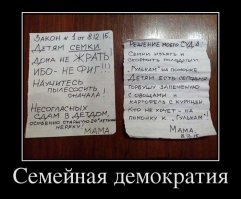 ЗАКОН №1 от 8.12.15.
Детям семки
дома не ЖРАТЬ
ИБО - НЕ ФИГ!!!
Научитесь
пылесосить
сначала!
Несогласных
сдам в детдом,
особенно старшую 20 летнюю
Мама
РЕШЕНИЕ моего СУДА
Семки изъять и
скормить голодным
"Гулькам" на помойке.
Детям есть
горбушу запеченную
с овощами и
картофель с курицей.
Кто не хочет - на
помойку к "Гулькам"!
Мама.
8.12.15.
Семейная демократия